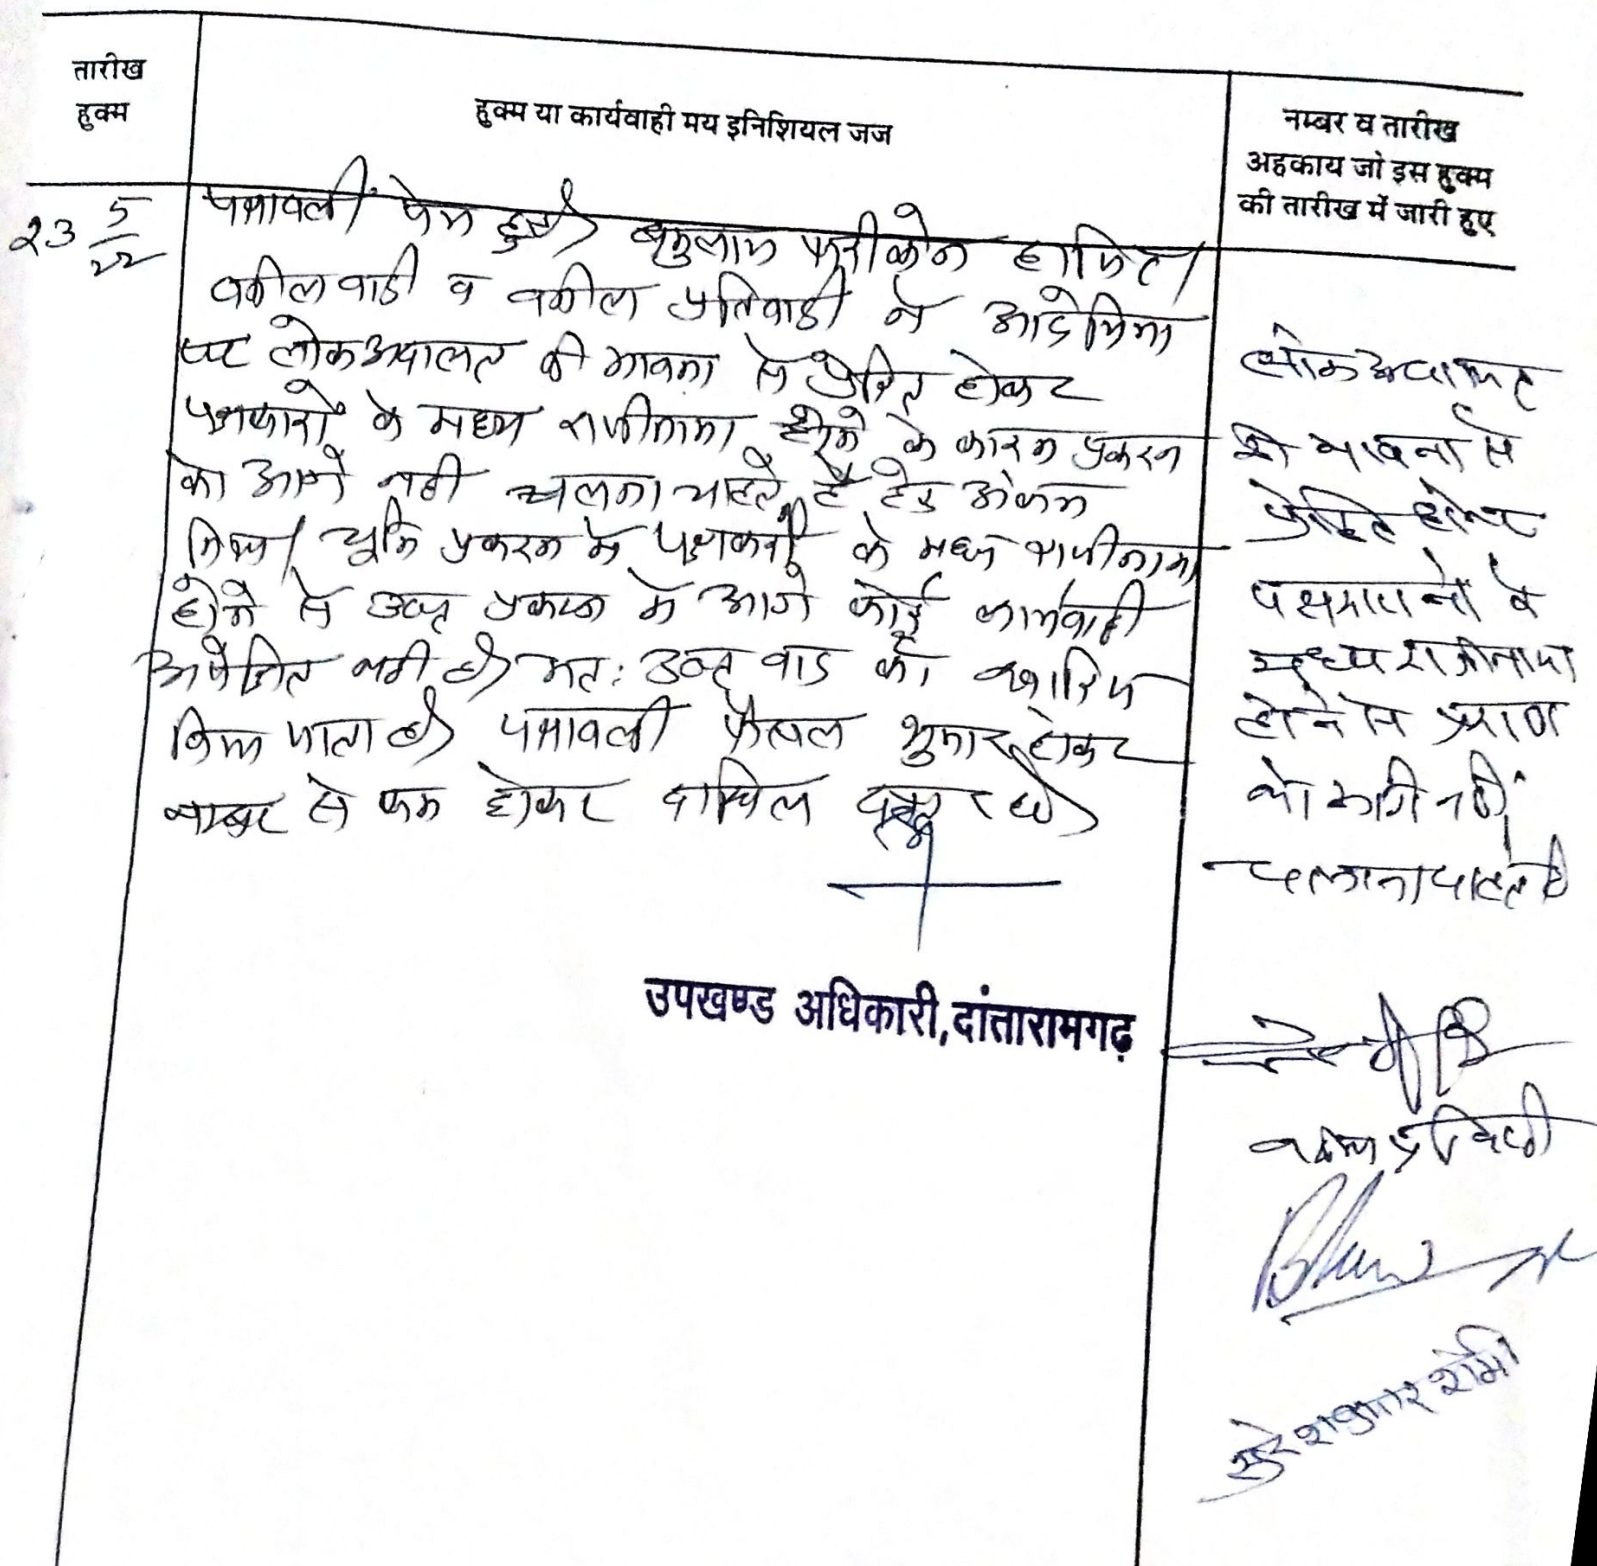 तारीख
हुक्म
हुक्म या कार्यवाही मय इनिशियल जज
नम्बर व तारीख
अहकाय जो इस हुक्म
की तारीख में जारी हुए
23 5/22
पत्रावली पेश हुई। वकुलाय फरीकेन हाजिर।
वकील वादी व वकील प्रतिवादी ने आदेशिका
पर लोक अदालत की भावना से प्रेरित होकर
पक्षकारों के मध्य राजीनामा होने के कारण प्रकरण
को आगे नही चलाना चाहते है अंकन
किया। चूकि प्रकरण मे पक्षकारों के मध्य राजीनामा
होने से उक्त प्रकरण मे आगे कोई कार्यवाही
अपेक्षित नही है। अत: उक्त वाद को खारिज
किया जाता है। पत्रावली फैसल शुमार होकर
नम्बर से कम होकर दाखिल दफ्तर हो।
उपखण्ड अधिकारी, दांतारामगढ़
लोक अदालत
की भावना से
प्रेरित होकर
पक्षकारानो के
मध्य राजीनामा
होने से प्रकरण
को आगे नहीं
चलाना चाहते है
वकील प्रतिवादी
सुरेश कुमार शर्मा